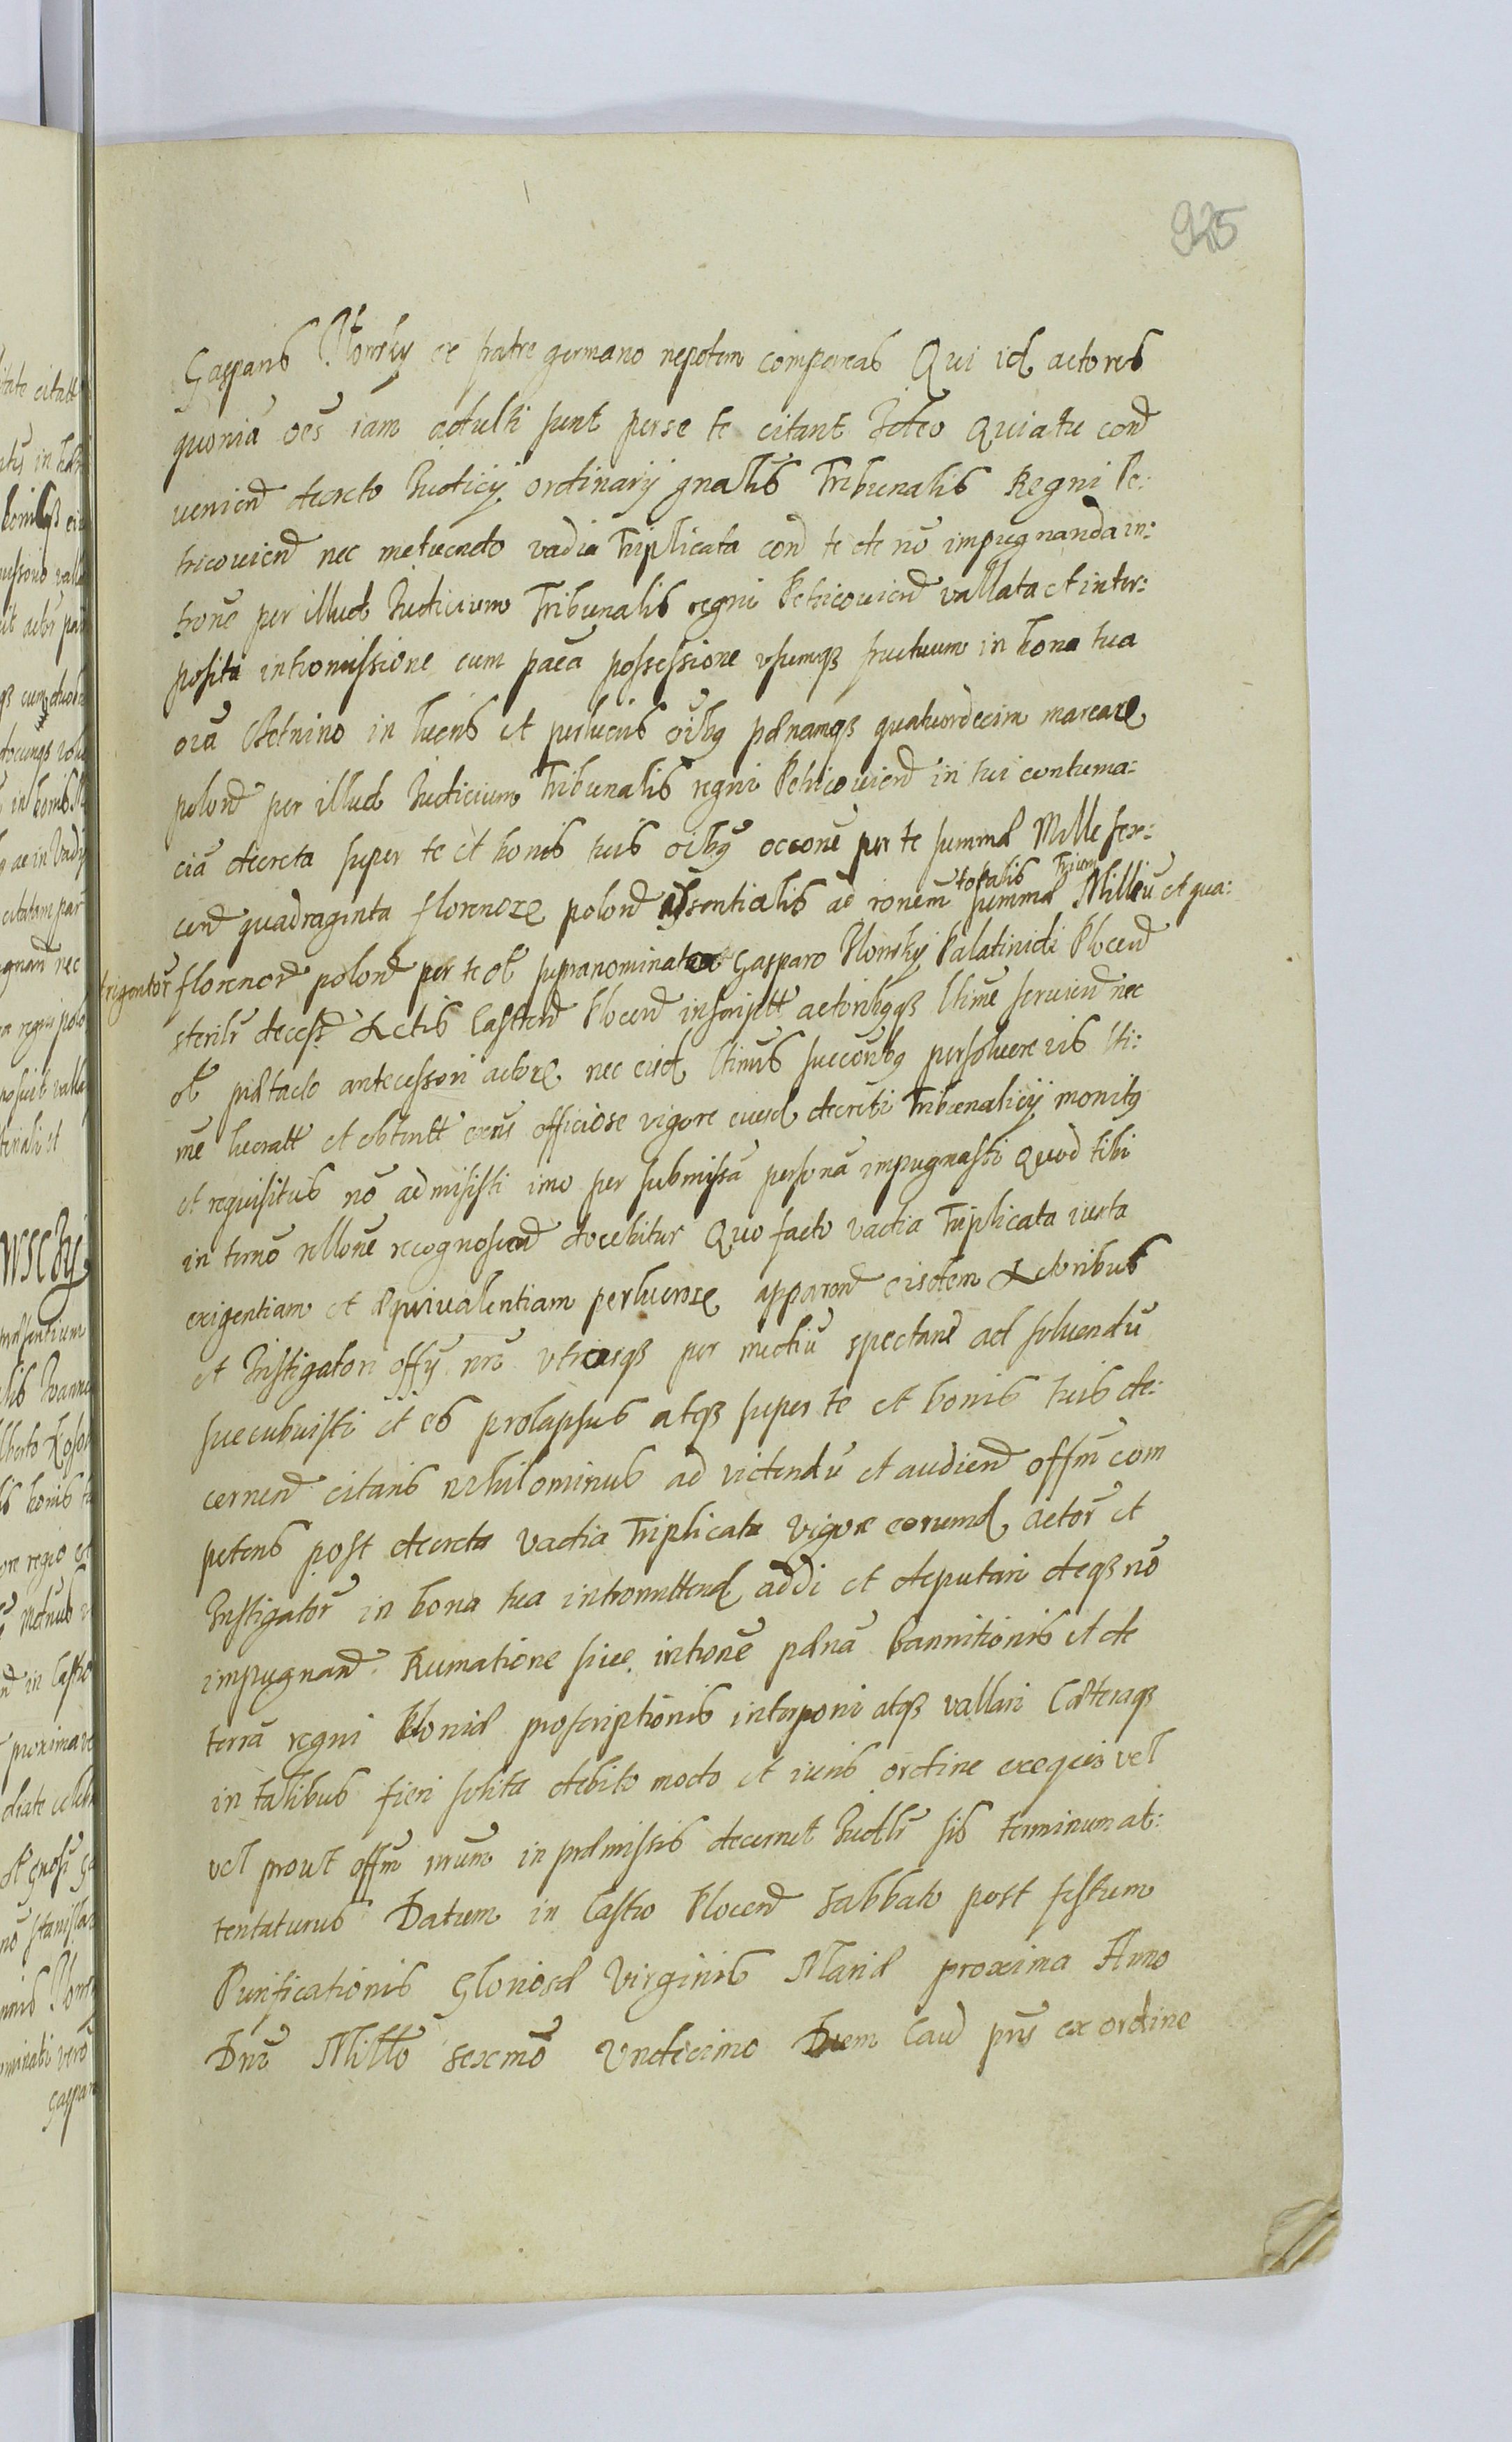 925
Gasparis Plonsky ex fratre germano nepotem compareas Qui id actores
quoniã oẽs iam adulti sunt per se te citant Ideo Quia tu con
uenien decreto Iudicij ordinarij gnalis Tribunalis Regni Pe:
tricouien nec metuendo vadia Triplicata con te de nõ impugnanda in:
trone per illud Iudicium Tribunalis regni Petricouien vallata et inter:
posita intromissione cum pacã possessione usumqз fructuum in bona tua
oiã in lucris et perlucris oibq pænamqз quatuordecim marcarꝝ
polon per illud Iudicium Tribunalis regni Petricouien in tui contuma:
ciã decreta super te et bonis tuis oibq occone per te summæ Mille sex:
cen quadraginta florenorꝝ polon essentialis ad ronem totalis summæ Trium Milliũ et qua:
trigentor florenor polon per te ol supranominato Gasparo Plonsky Palatinidi Plocen
sterilr decess Actis Castren Plocen inscriptt actoribqqз ltime seruien nec
ol prætacto antecessori actorꝝ nec eisd ltimis succoribq persoluere vis lti:
me lucratt et obtentt officiose vigore eiusd decreti Tribunalicij monitq
et requisitus nõ admisisti imo per submissã personã impugnasti Quod tibi
in termo rellone recognoscen docebitur Quo facto vadia Triplicata iuxta
exigentiam et æquivalentiam perlucrorꝝ apparen eisdem Actoribus
et Instigatori offij nri utriusqз per mediũ spectane ad soluendũ
succubuisti et es prolapsus atqз super te et bonis tuis de:
cernen citaris Nihilominus ad videndũ et audien offm com
petens post decreta vadia Triplicata vigore eorumd actor et
Instigator in bona tua intromittend addi et deputari deqз nõ
impugnan Rumatione siue introne pænã bannitionis et de
terrã regni Poloniæ proscriptionis interponi atqз vallari Cæteraqз
in talibus fieri solita debito modo et iuris ordine exequi vel
vel prout offm nrum in præmissis decernet Iudlr sis terminum at:
tentaturus Datum in Castro Plocen Sabbato post festum
Purificationis Gloriosæ Virginis Mariæ proxima Anno
Dni Millo sexmo Vndecimo Diem Cau pns ex ordine